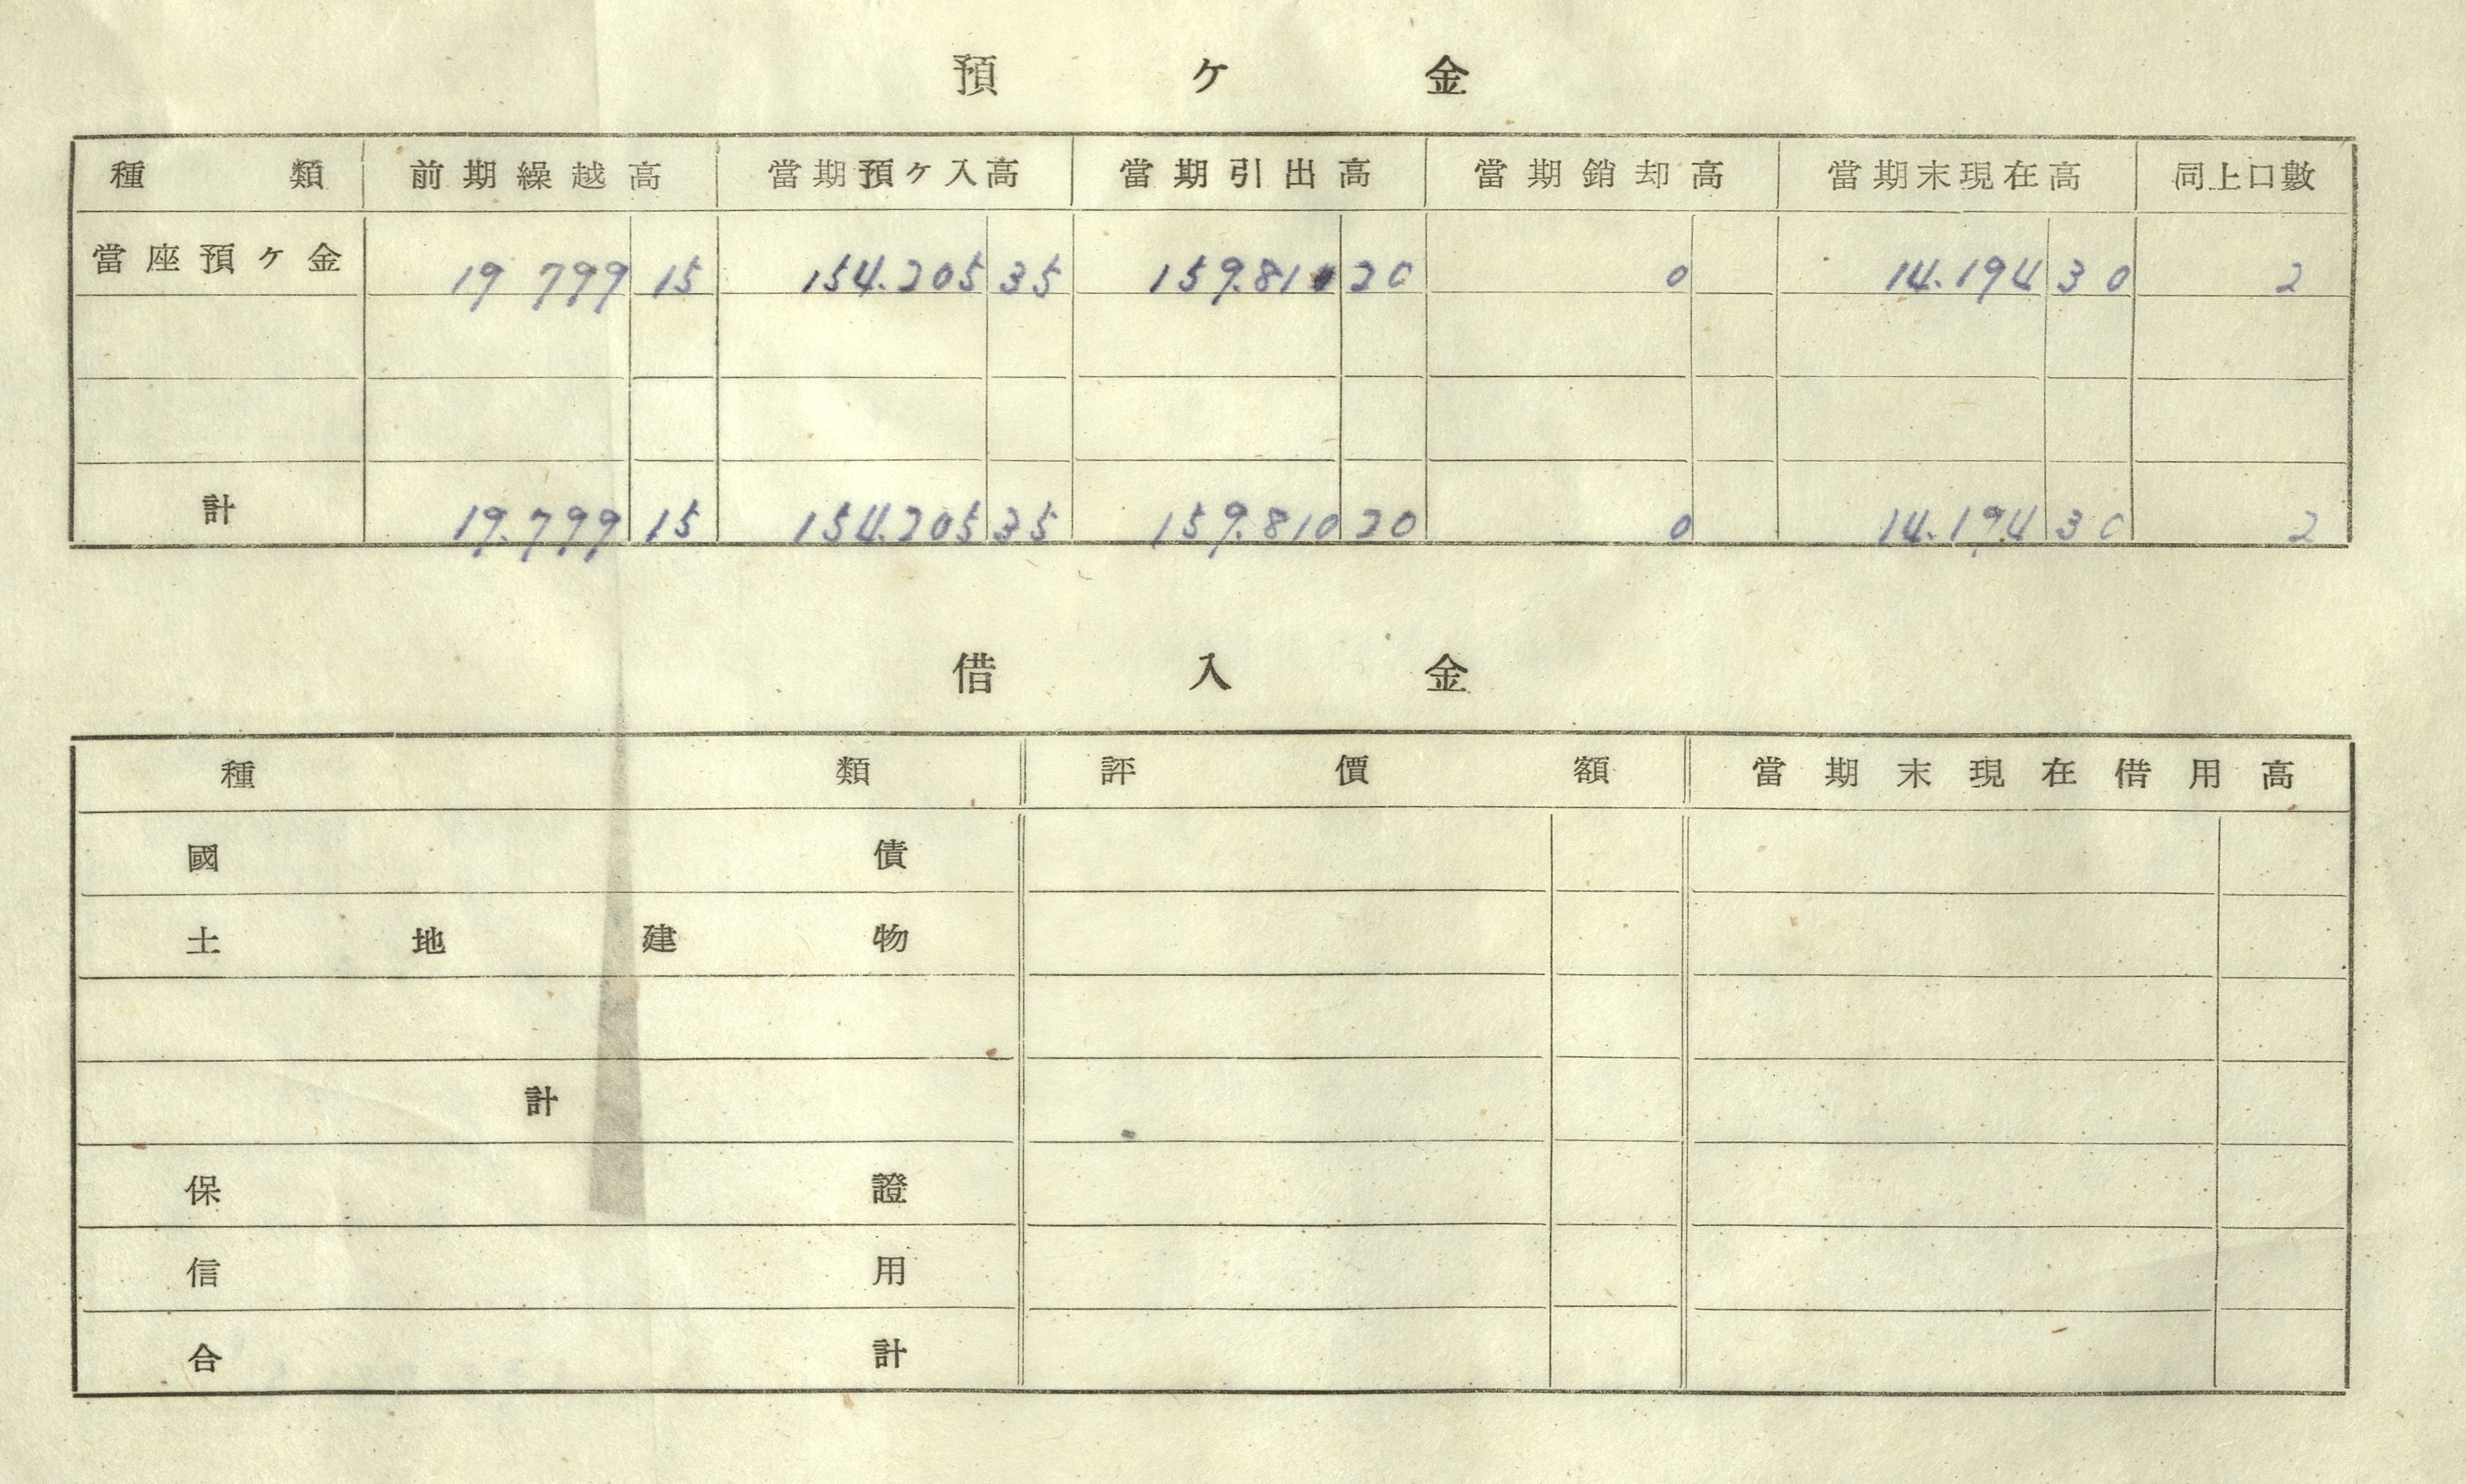 預ケ金
種類 前期繰越高 當期預ケ入高 當期引出高 當期銷却高 當期末現在高 同上口數
當座預ケ金 19 799 15 154.205 35 159.810 20 0 14.194 30 2
計 19.799 15 154.205 35 159.810 20 0 14.194 30 2
借入金
種類 評價額 當期末現在借用高
國債
土地建物
計
保證
信用
合計